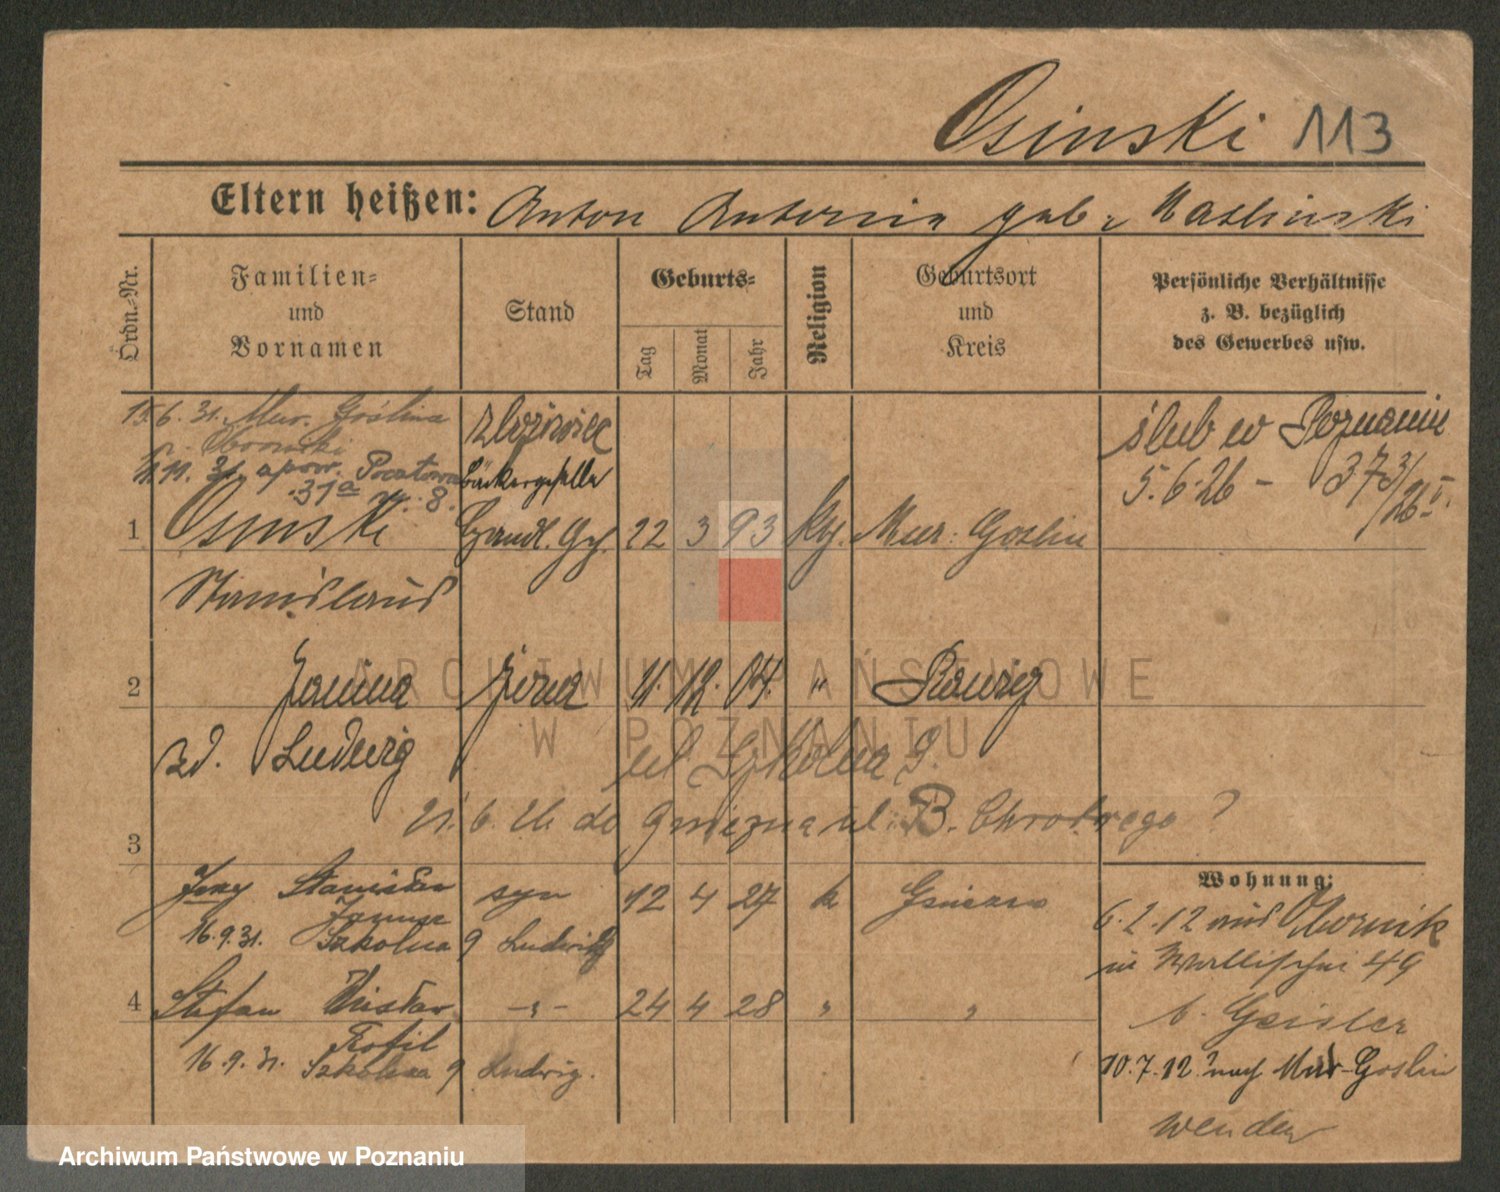 Osinski 113
Eltern heißen: Anton Antonia geb. Maslinski
Ordn.-Nr.
Familien-
und
Vornamen
Stand
Geburts-
Tag
Monat
Jahr
Religion
Geburtsort
und
Kreis
Persönliche Verhältnisse
z. B. bezüglich
des Gewerbes usw.
15.6.31. Mur. Goślina
11.11.31. Pocztowa
31a m. 8.
Bäckergeselle
ślub w Poznaniu
5.6.26 - 373/26 I.
1 Osinski Handl. Geh. 22 3 93 Mur: Goslin
Stanislaus
2 Janina żona 11. 12. 04. " Rawicz
zd. Ludwig
ul Szkolna 9.
21.6.26 do Gniezna ul. B. Chrobrego ?
3
Wohnung:
Jerzy Stanisław syn 12 4 27 k Gniezno
Janusz
16.9.31. Szkolna 9 Ludwig
6.2.12 aus Obornik
in Wallischei 49
b. Geisler
4 Stefan Wisław -"- 24 4 28 " "
Teofil
16.9.31. Szkolna 9 Ludwig.
10.7.12 nach Mur-Goslin
wenden
ARCHIWUM PAŃSTWOWE
W POZNANIU
Archiwum Państwowe w Poznaniu